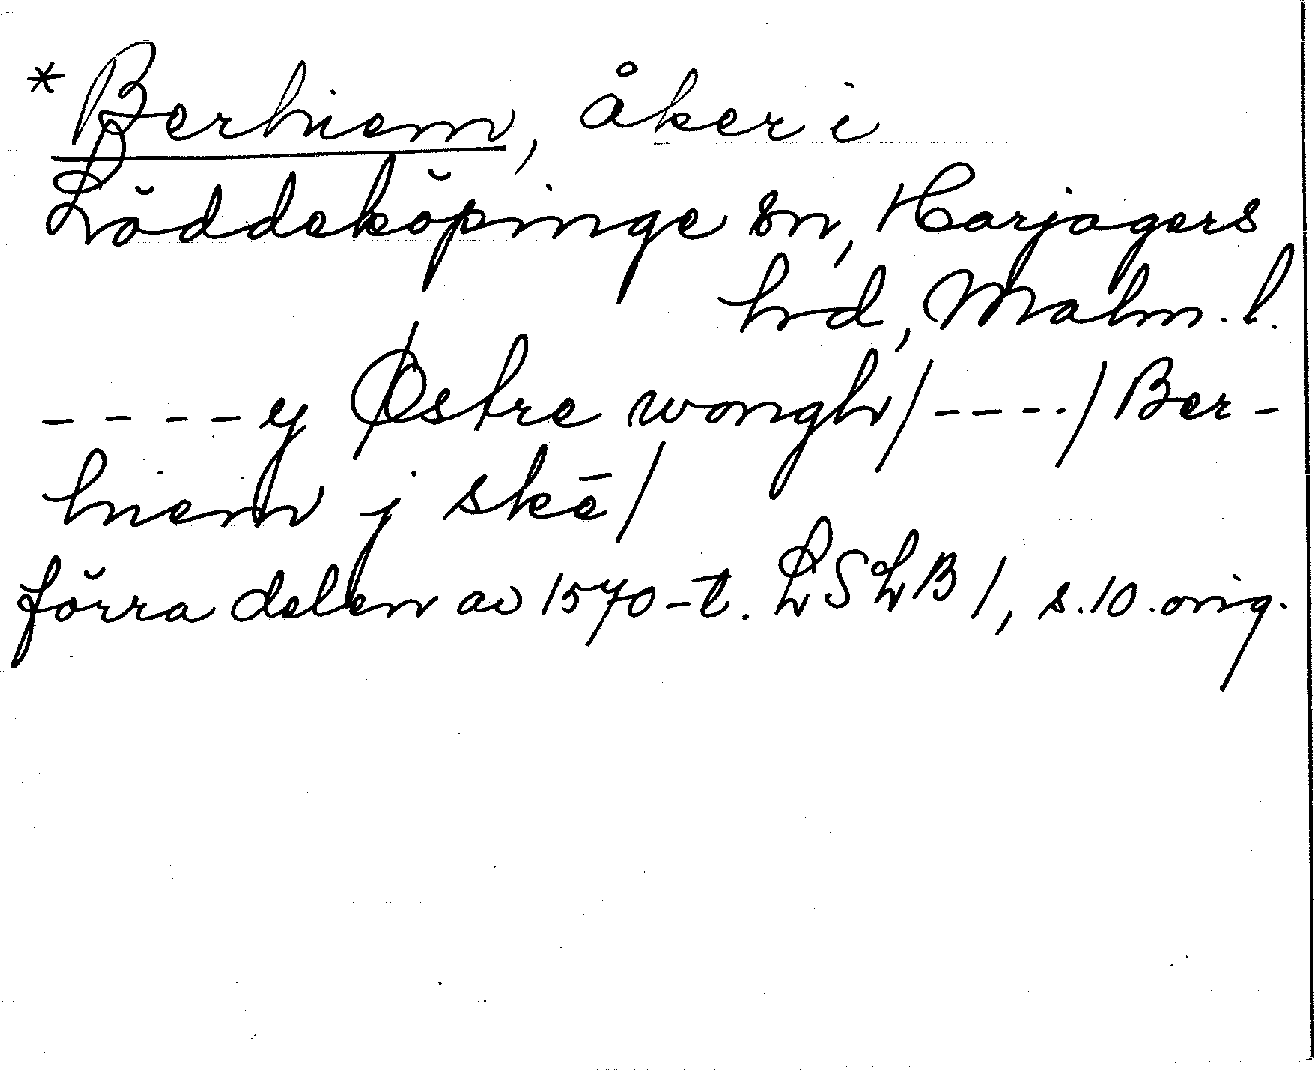 *Berhiem, åker i
Löddeköpinge sn, Harjagers
hd, Malm. l.
----y Østre wongh/----/Ber-
hiem j skē/
förra delen av 1570-t. LSLB 1, s. 10. orig.